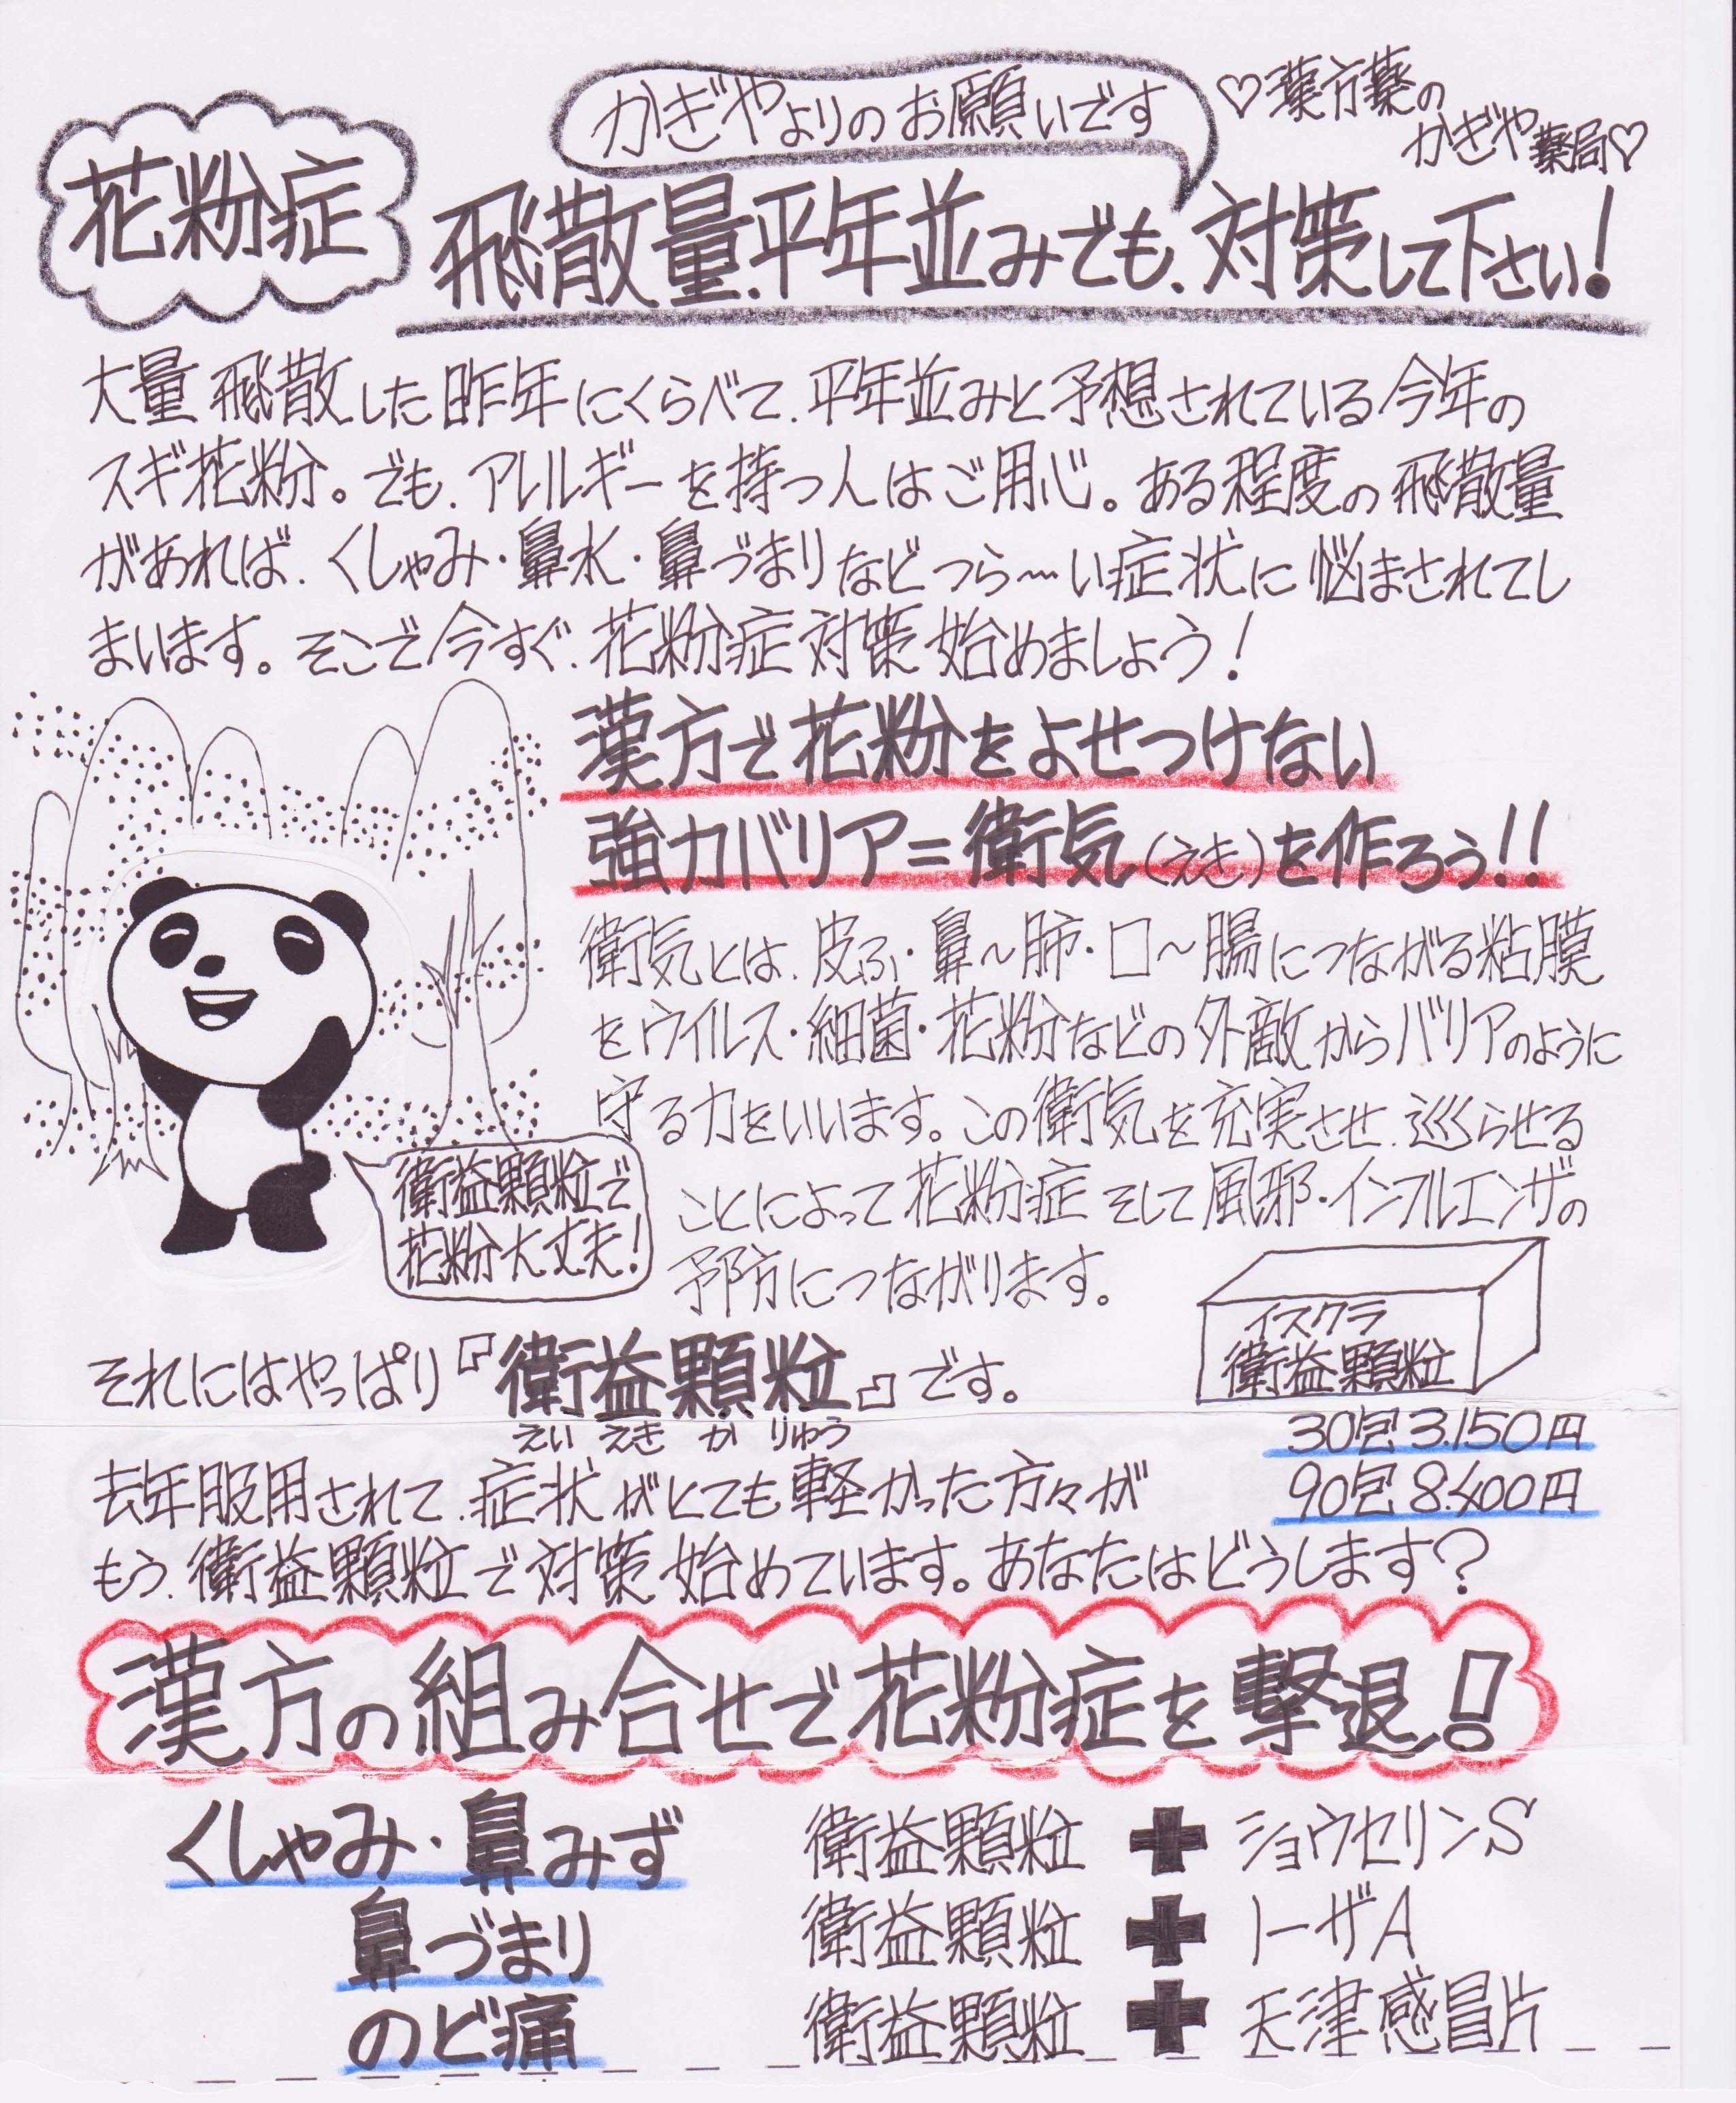 かぎやよりのお願いです
♡漢方薬の
かぎや薬局♡
花粉症
飛散量平年並みでも、対策して下さい!
大量飛散した昨年にくらべて、平年並みと予想されている今年の
スギ花粉。でも、アレルギーを持つ人はご用心。ある程度の飛散量
があれば、くしゃみ・鼻水・鼻づまりなどつら〜い症状に悩まされてし
まいます。そこで今すぐ、花粉症対策始めましょう!
漢方で花粉をよせつけない
強力バリア=衛気(えき)を作ろう!!
衛気とは、皮ふ・鼻〜肺・口〜腸につながる粘膜
をウイルス・細菌・花粉などの外敵からバリアのように
守る力をいいます。この衛気を充実させ、巡らせる
ことによって花粉症そして風邪・インフルエンザの
予防につながります。
衛益顆粒で
花粉大丈夫!
イスクラ
衛益顆粒
それにはやっぱり『衛益顆粒』です。
えいえきかりゅう
30包3.150円
90包8.400円
去年服用されて、症状がとても軽かった方々が
もう、衛益顆粒で対策始めています。あなたはどうします?
漢方の組み合せで花粉症を撃退!
くしゃみ・鼻みず 衛益顆粒 + ショウセリンS
鼻づまり 衛益顆粒 + トーザA
のど痛 衛益顆粒 + 天津感冒片